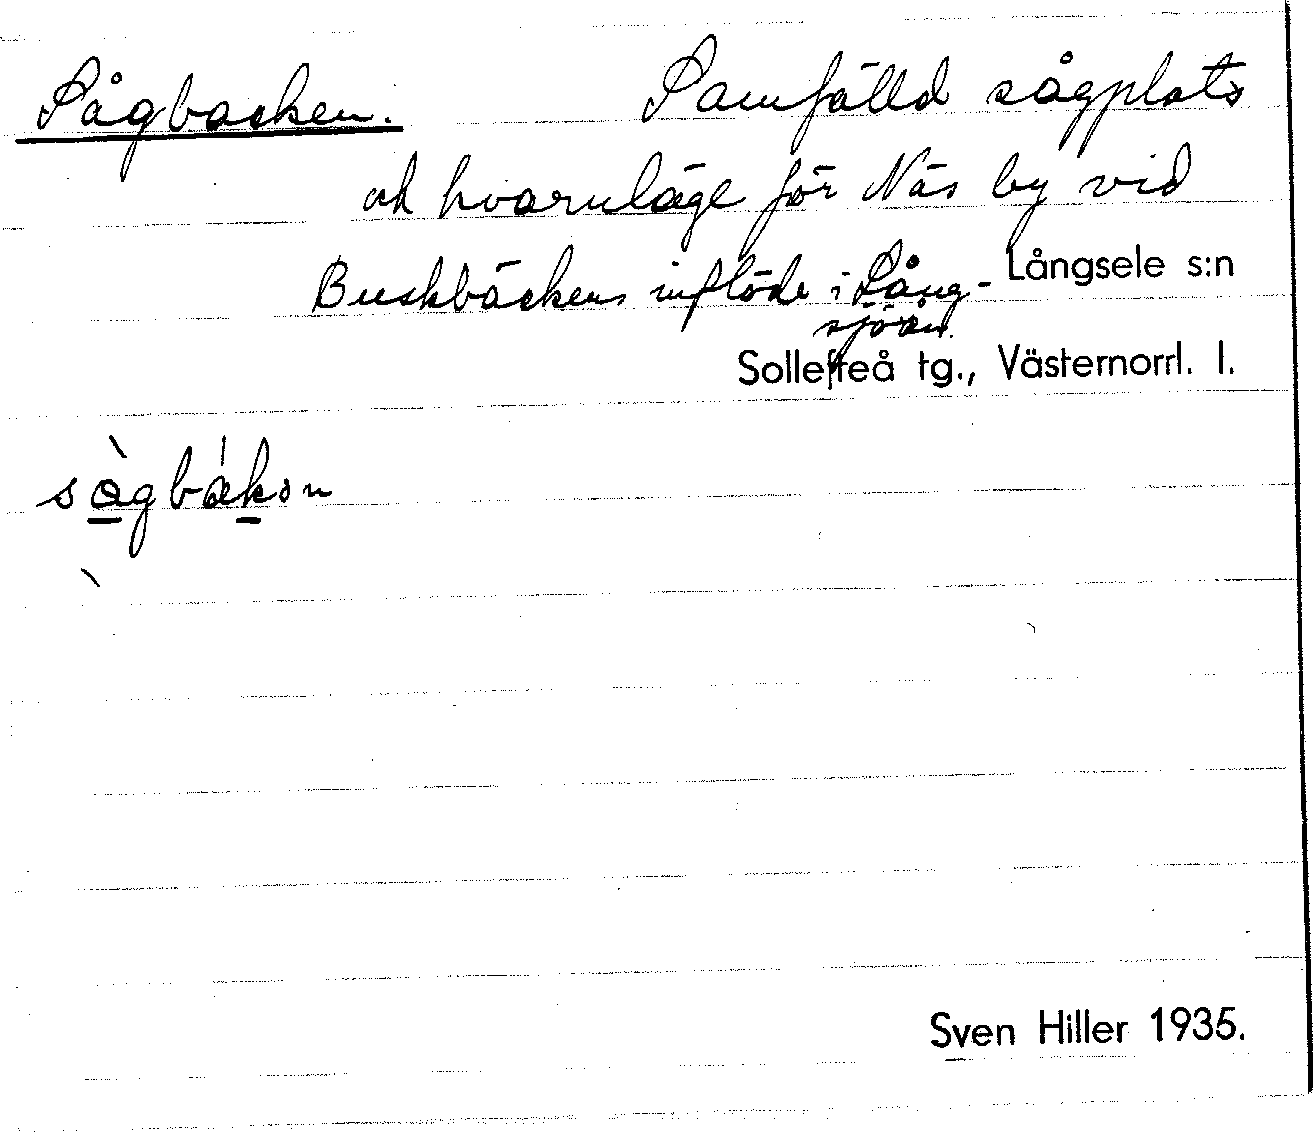 Sågbacken. Samfälld sågplats
och hvarnläge för Näs by vid
Buskbäckens inflöde i Lång-
sjöån.
Långsele s:n
Sollefteå tg., Västernorrl. l.
sågbákən
Sven Hiller 1935.